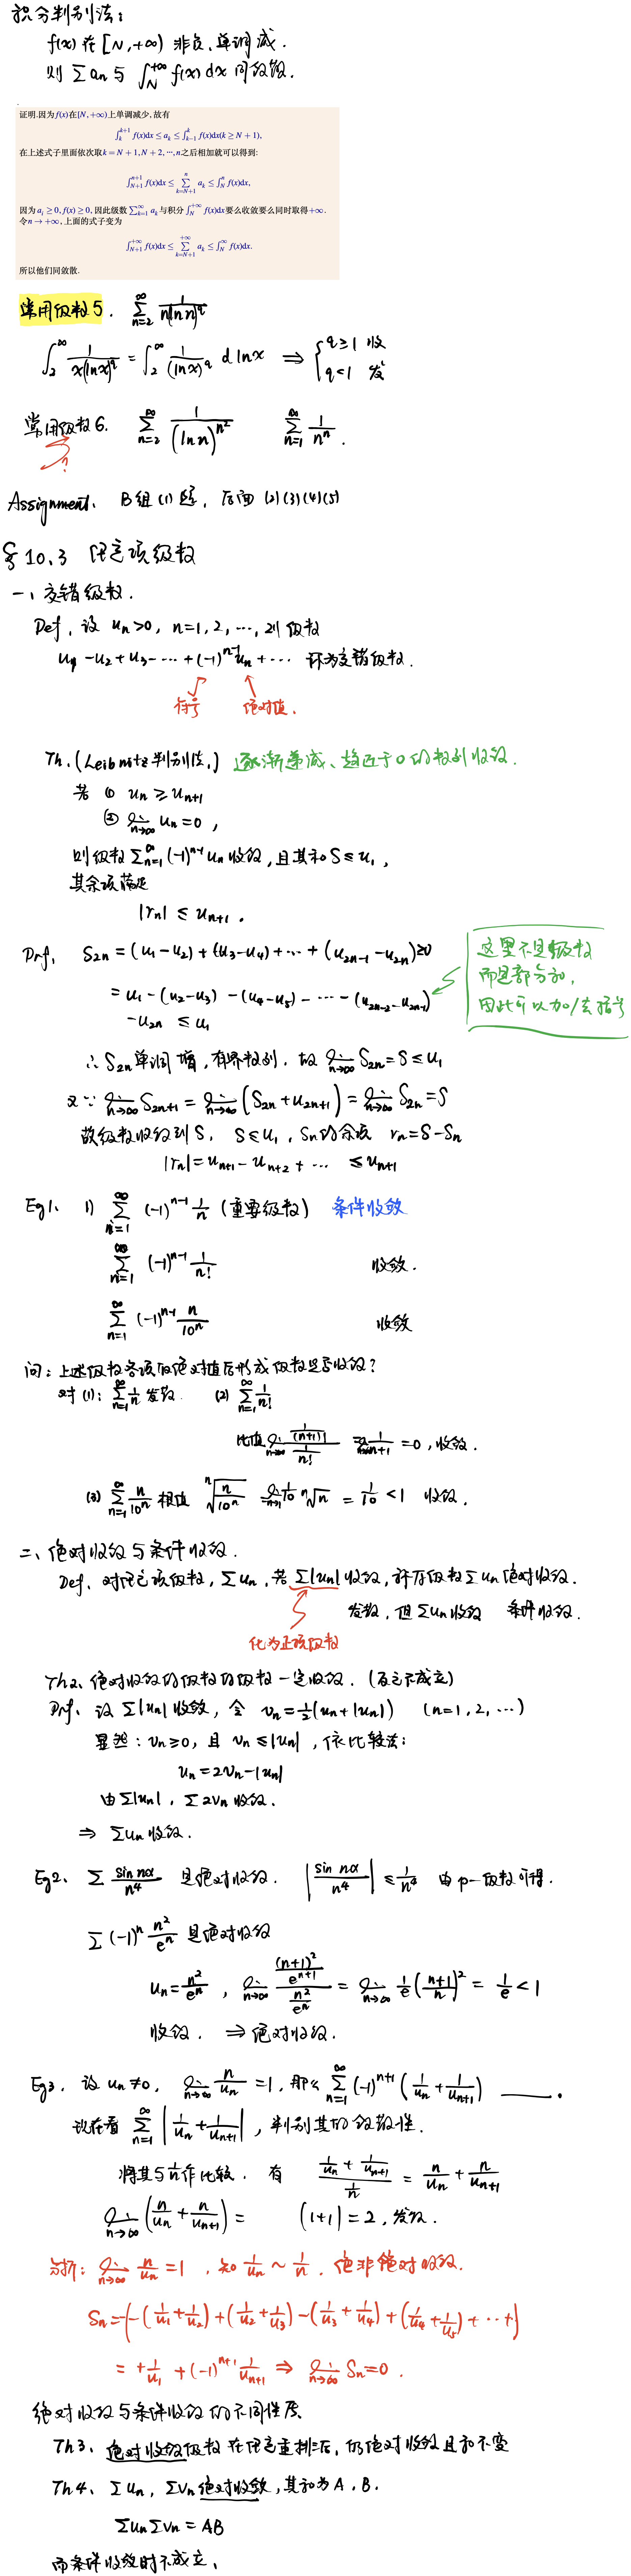 积分判别法:
f(x) 在 [N,+∞) 非负、单调减.
则 ∑an 与 ∫_N^{+∞} f(x) dx 同敛散.
证明.因为f(x)在[N,+∞)上单调减少,故有
∫_k^{k+1} f(x)dx ≤ a_k ≤ ∫_{k-1}^k f(x)dx(k ≥ N + 1),
在上述式子里面依次取k = N + 1, N + 2, ⋯, n之后相加就可以得到:
∫_{N+1}^{n+1} f(x)dx ≤ ∑_{k=N+1}^n a_k ≤ ∫_N^n f(x)dx,
因为 a_i ≥ 0, f(x) ≥ 0, 因此级数 ∑_{k=1}^∞ a_k 与积分 ∫_N^{+∞} f(x)dx要么收敛要么同时取得+∞.
令n → +∞, 上面的式子变为
∫_{N+1}^{+∞} f(x)dx ≤ ∑_{k=N+1}^{+∞} a_k ≤ ∫_N^∞ f(x)dx.
所以他们同敛散.
常用级数5. ∑_{n=2}^∞ 1/(n(ln n)^q)
∫_2^∞ 1/(x(ln x)^q) = ∫_2^∞ 1/(ln x)^q d ln x ⇒ { q≥1 收
q<1 发
常用级数6. ∑_{n=2}^∞ 1/(ln n)^{n^2} ∑_{n=1}^∞ 1/n^n.
?
Assignment. B组(1)题, 后面 (2)(3)(4)(5)
§10.3 任意项级数
一、交错级数.
Def. 设 un>0, n=1,2,⋯, 则级数
u1-u2+u3-⋯+(-1)^{n-1}un+⋯ 称为交错级数.
符号 绝对值.
Th.(Leibnitz判别法.) 逐渐递减、趋近于0的数列收敛.
若 ① un ≥ un+1
② lim_{n→∞} un=0,
则级数 ∑_{n=1}^∞ (-1)^{n-1} un 收敛, 且其和 S≤u1,
其余项满足
|rn| ≤ un+1.
Prf. S2n=(u1-u2)+(u3-u4)+⋯+(u2n-1-u2n)≥0
= u1-(u2-u3)-(u4-u5)-⋯-(u2n-2-u2n-1)
-u2n ≤u1
这里不是级数
而是部分和,
因此可以加/去括号
∴ S2n 单调增, 有界数列, 故 lim_{n→∞} S2n=S≤u1
又∵ lim_{n→∞} S2n+1= lim_{n→∞}(S2n+u2n+1)= lim_{n→∞} S2n=S
故级数收敛到S, S≤u1, Sn的余项 rn=S-Sn
|rn|=un+1-un+2+⋯ ≤un+1
Eg1. 1) ∑_{n=1}^∞ (-1)^{n-1} 1/n (重要级数) 条件收敛
∑_{n=1}^∞ (-1)^{n-1} 1/n! 收敛.
∑_{n=1}^∞ (-1)^{n-1} n/10^n 收敛
问: 上述级数各项取绝对值后形成级数是否收敛?
对(1): ∑_{n=1}^∞ 1/n 发散. (2) ∑_{n=1}^∞ 1/n!
比值 lim_{n→∞} (1/(n+1)!)/(1/n!) = lim_{n→∞} 1/(n+1) =0, 收敛.
(3) ∑_{n=1}^∞ n/10^n 根值 ⁿ√(n/10^n) = lim_{n→∞} 1/10 ⁿ√n = 1/10 <1 收敛.
二、绝对收敛与条件收敛.
Def. 对任意项级数, ∑un, 若 ∑|un| 收敛, 称原级数 ∑un 绝对收敛.
发散, 但∑un收敛 条件收敛.
化为正项级数
Th2. 绝对收敛的级数的级数一定收敛. (反之不成立)
Prf. 设 ∑|un| 收敛, 令 vn=1/2(un+|un|) (n=1,2,⋯)
显然: vn≥0, 且 vn≤|un|, 依比较法:
un=2vn-|un|
由∑|un|, ∑2vn 收敛.
⇒ ∑un 收敛.
Eg2. ∑ sin nα/n^4 是绝对收敛. |sin nα/n^4| ≤ 1/n^4 由p-级数可得.
∑(-1)^n n^2/e^n 是绝对收敛
un=n^2/e^n, lim_{n→∞} ((n+1)^2/e^{n+1})/(n^2/e^n) = lim_{n→∞} 1/e ((n+1)/n)^2 = 1/e <1
收敛. ⇒ 绝对收敛.
Eg3. 设 un≠0, lim_{n→∞} n/un=1, 那么 ∑_{n=1}^∞ (-1)^{n+1}(1/un+1/un+1) ____.
现在看 ∑_{n=1}^∞ |1/un+1/un+1|, 判别其的敛散性.
将其与1/n作比较. 有 (1/un+1/un+1)/(1/n) = n/un+n/un+1
lim_{n→∞}(n/un+n/un+1)= (1+1)=2, 发散.
分析: lim_{n→∞} n/un=1, 知 1/un ~ 1/n. 但非绝对收敛.
Sn={-(1/u1+1/u2)+(1/u2+1/u3)-(1/u3+1/u4)+(1/u4+1/u5)+⋯+}
= +1/u1+(-1)^{n+1} 1/un+1 ⇒ lim_{n→∞} Sn=0.
绝对收敛与条件收敛的不同性质
Th3. 绝对收敛级数在任意重排后, 仍绝对收敛且和不变
Th4. ∑un, ∑vn 绝对收敛, 其和为A, B.
∑un∑vn=AB
而条件收敛时不成立.